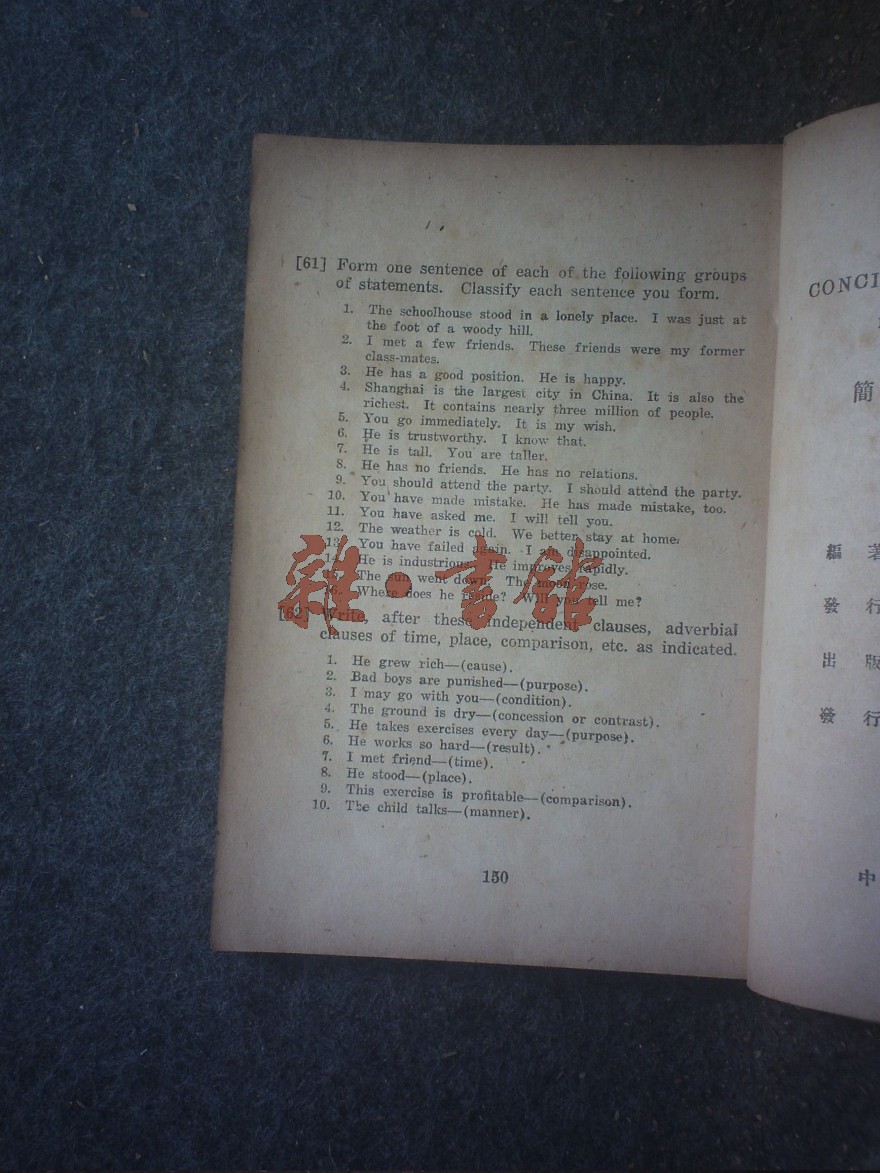 [61] Form one sentence of each of the following groups
of statements. Classify each sentence you form.
1. The schoolhouse stood in a lonely place. I was just at
the foot of a woody hill.
2. I met a few friends. These friends were my former
class-mates.
3. He has a good position. He is happy.
4. Shanghai is the largest city in China. It is also the
richest. It contains nearly three million of people.
5. You go immediately. It is my wish.
6. He is trustworthy. I know that.
7. He is tall. You are taller.
8. He has no friends. He has no relations.
9. You should attend the party. I should attend the party.
10. You have made mistake. He has made mistake, too.
11. You have asked me. I will tell you.
12. The weather is cold. We better stay at home.
13. You have failed again. I am disappointed.
14. He is industrious. He improves rapidly.
15. The sun went down. The moon rose.
16. Where does he reside? Will you tell me?
雜·書館
[62] Write, after these independent clauses, adverbial
clauses of time, place, comparison, etc. as indicated.
1. He grew rich—(cause).
2. Bad boys are punished—(purpose).
3. I may go with you—(condition).
4. The ground is dry—(concession or contrast).
5. He takes exercises every day—(purpose).
6. He works so hard—(result).
7. I met friend—(time).
8. He stood—(place).
9. This exercise is profitable—(comparison).
10. The child talks—(manner).
150
CONCI
簡
編著
發行
出版
發行
中